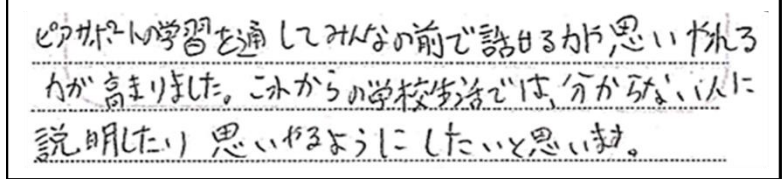 ピアサポートの学習を通してみんなの前で話せる力や思いやれる
力が高まりました。これからの学校生活では、分からない人に
説明したり思いやるようにしたいと思います。